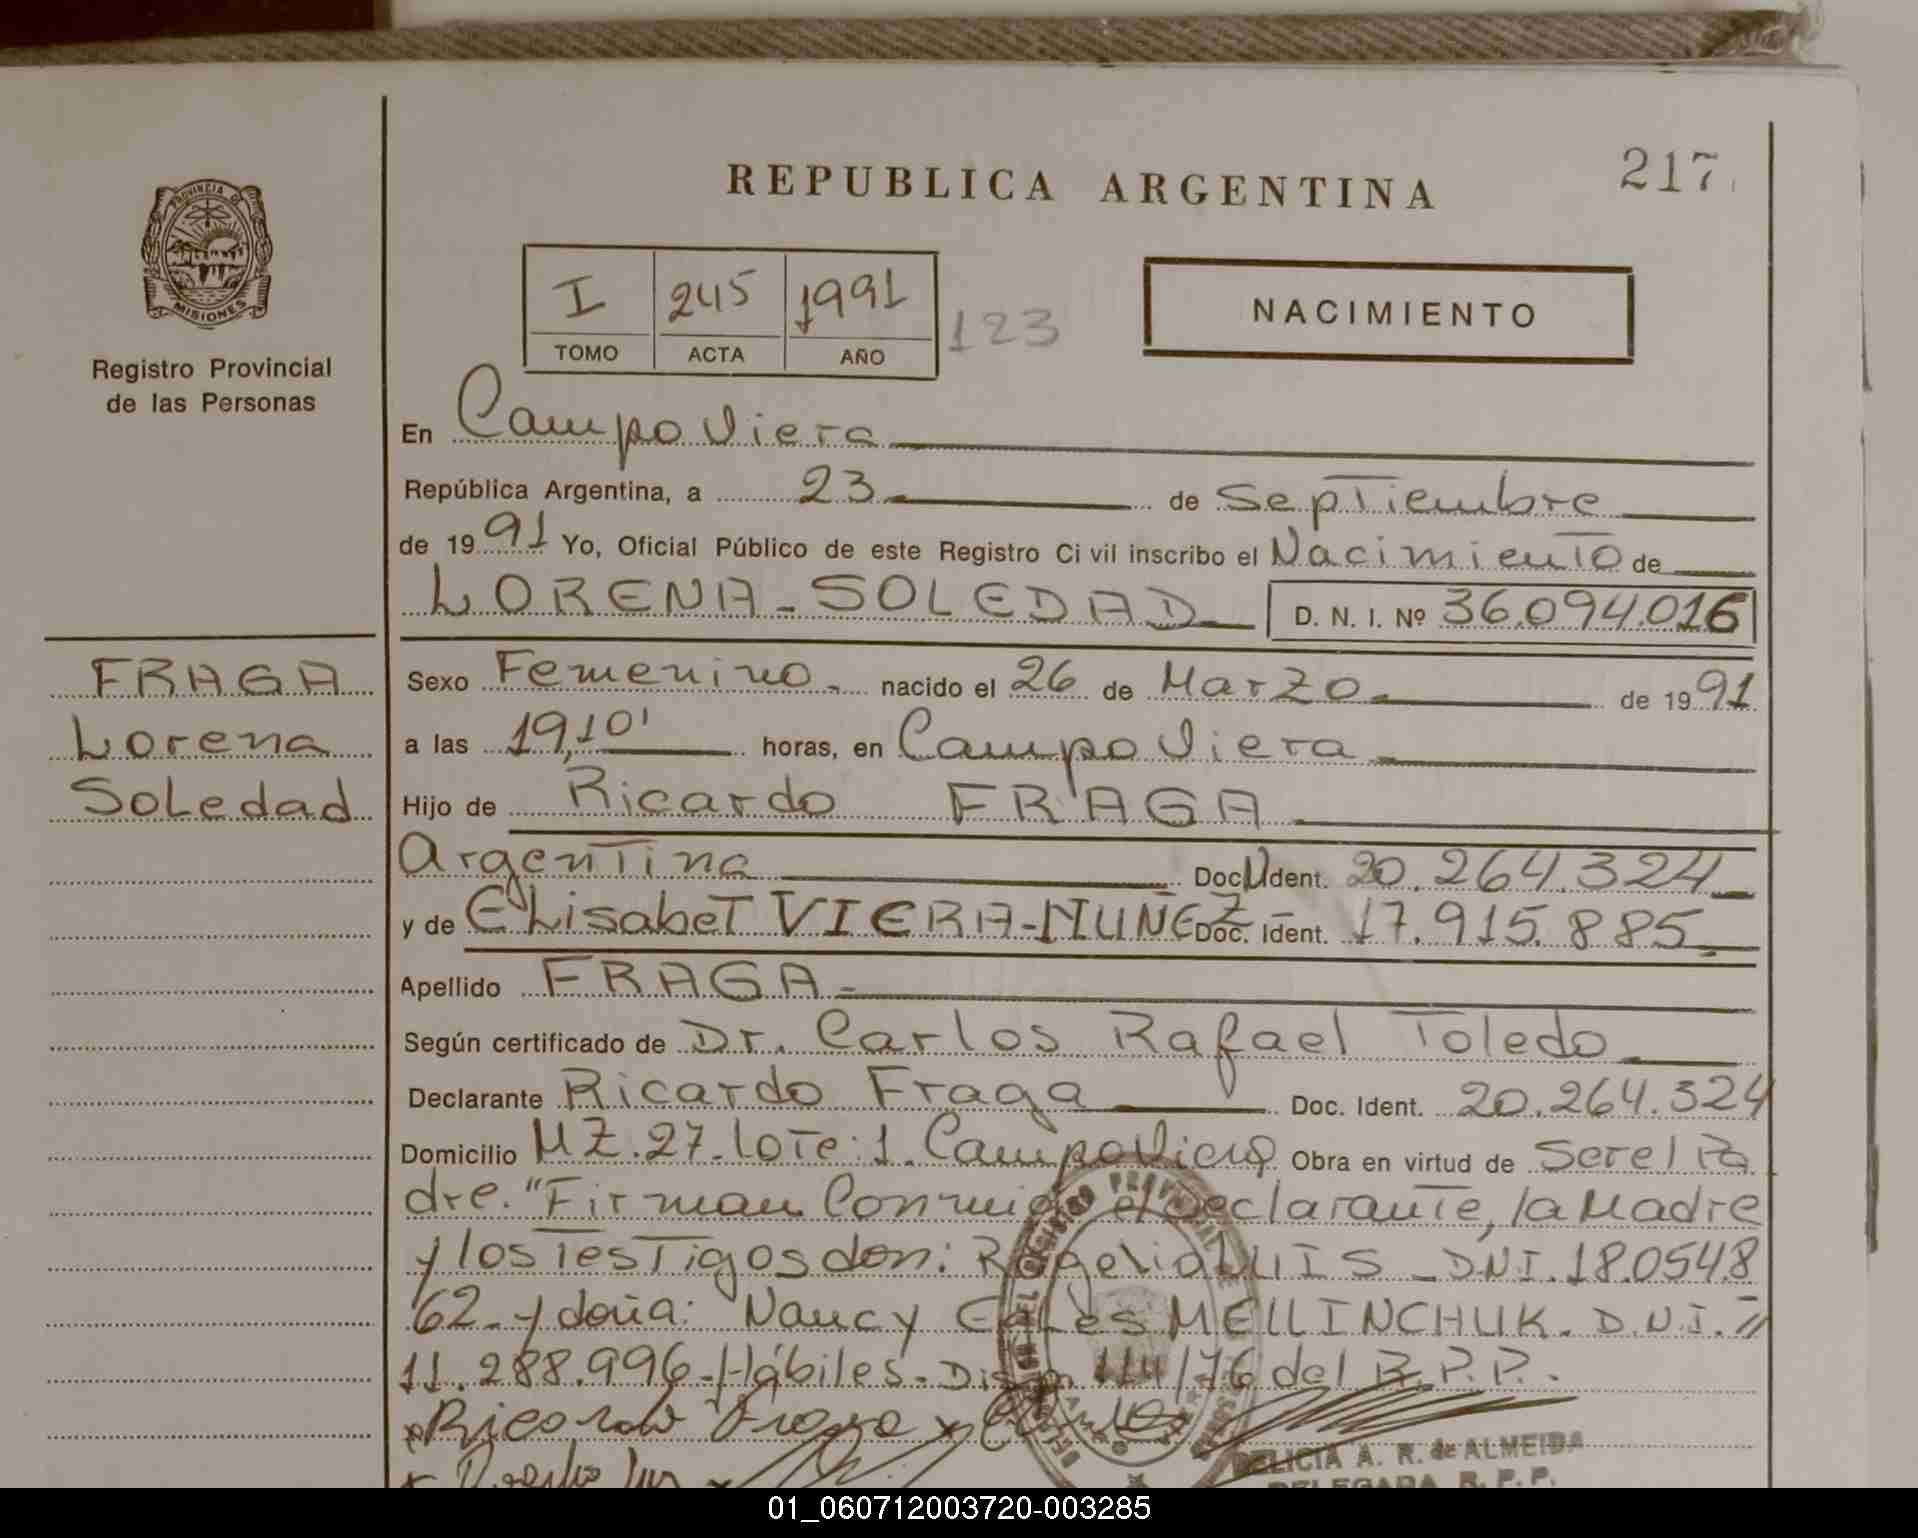 REPUBLICA ARGENTINA
217
PROVINCIA
MISIONES
Registro Provincial
de las Personas
I 245 1991
TOMO ACTA AÑO
123
NACIMIENTO
En Campo Viera
República Argentina, a 23 de Septiembre
de 1991 Yo, Oficial Público de este Registro Civil inscribo el Nacimiento de
LORENA - SOLEDAD D. N. I. Nº 36.094.016
FRAGA
Lorena
Soledad
Sexo Femenino. nacido el 26 de Marzo de 1991
a las 19,10' horas, en Campo Viera
Hijo de Ricardo FRAGA
Argentina Doc. Ident. 20.264.324
y de Elisabet VIERA-NUÑEZ Doc. Ident. 17.915.885
Apellido FRAGA
Según certificado de Dr. Carlos Rafael Toledo
Declarante Ricardo Fraga Doc. Ident. 20.264.324
Domicilio MZ.27.Lote:1.Campo Viera Obra en virtud de Ser el Pa
dre. "Firman Conmigo el Declarante, la Madre
y los Testigos don: Rogelio LUIS - DNI.18.0548
62- y doña: Nancy MELLINCHUK. D.N.I.=
11.288.996-Hábiles. 114/76 del R.P.P.
x Ricardo Fraga x
DELICIA A. R. de ALMEIDA
DELEGADA R. P. P.
01_060712003720-003285